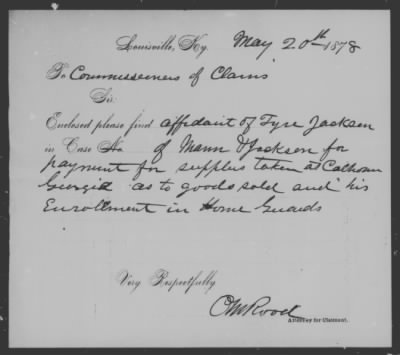 Louisville, Ky. May 20th 1878
To Commisseners of Claims
Sir:
Enclosed please find affidavit of Tyre Jackson
in Case No of Mann & Jackson for
payment for supplies taken at Calhoun
Georgia as to goods sold and his
Enrollment in Home Guards
Very Respectfully
Attorney for Claimant.